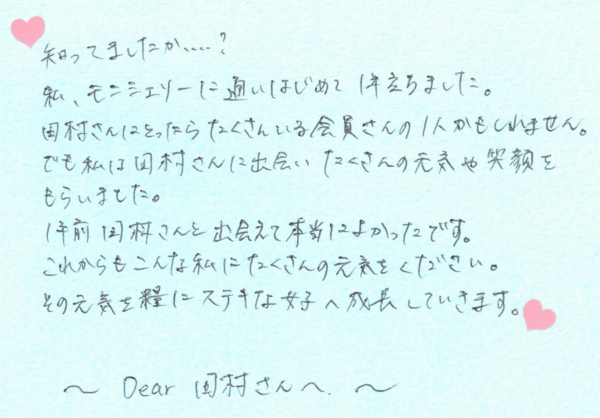 知ってましたか、、、、?
私、モンシェリーに通いはじめて1年立ちました。
田村さんにとったらたくさんいる会員さんの1人かもしれません。
でも私は田村さんに出会いたくさんの元気や笑顔を
もらいました。
1年前田村さんと出会えて本当によかったです。
これからもこんな私にたくさんの元気をください。
その元気を糧にステキな女子へ成長していきます。
〜 Dear 田村さんへ. 〜